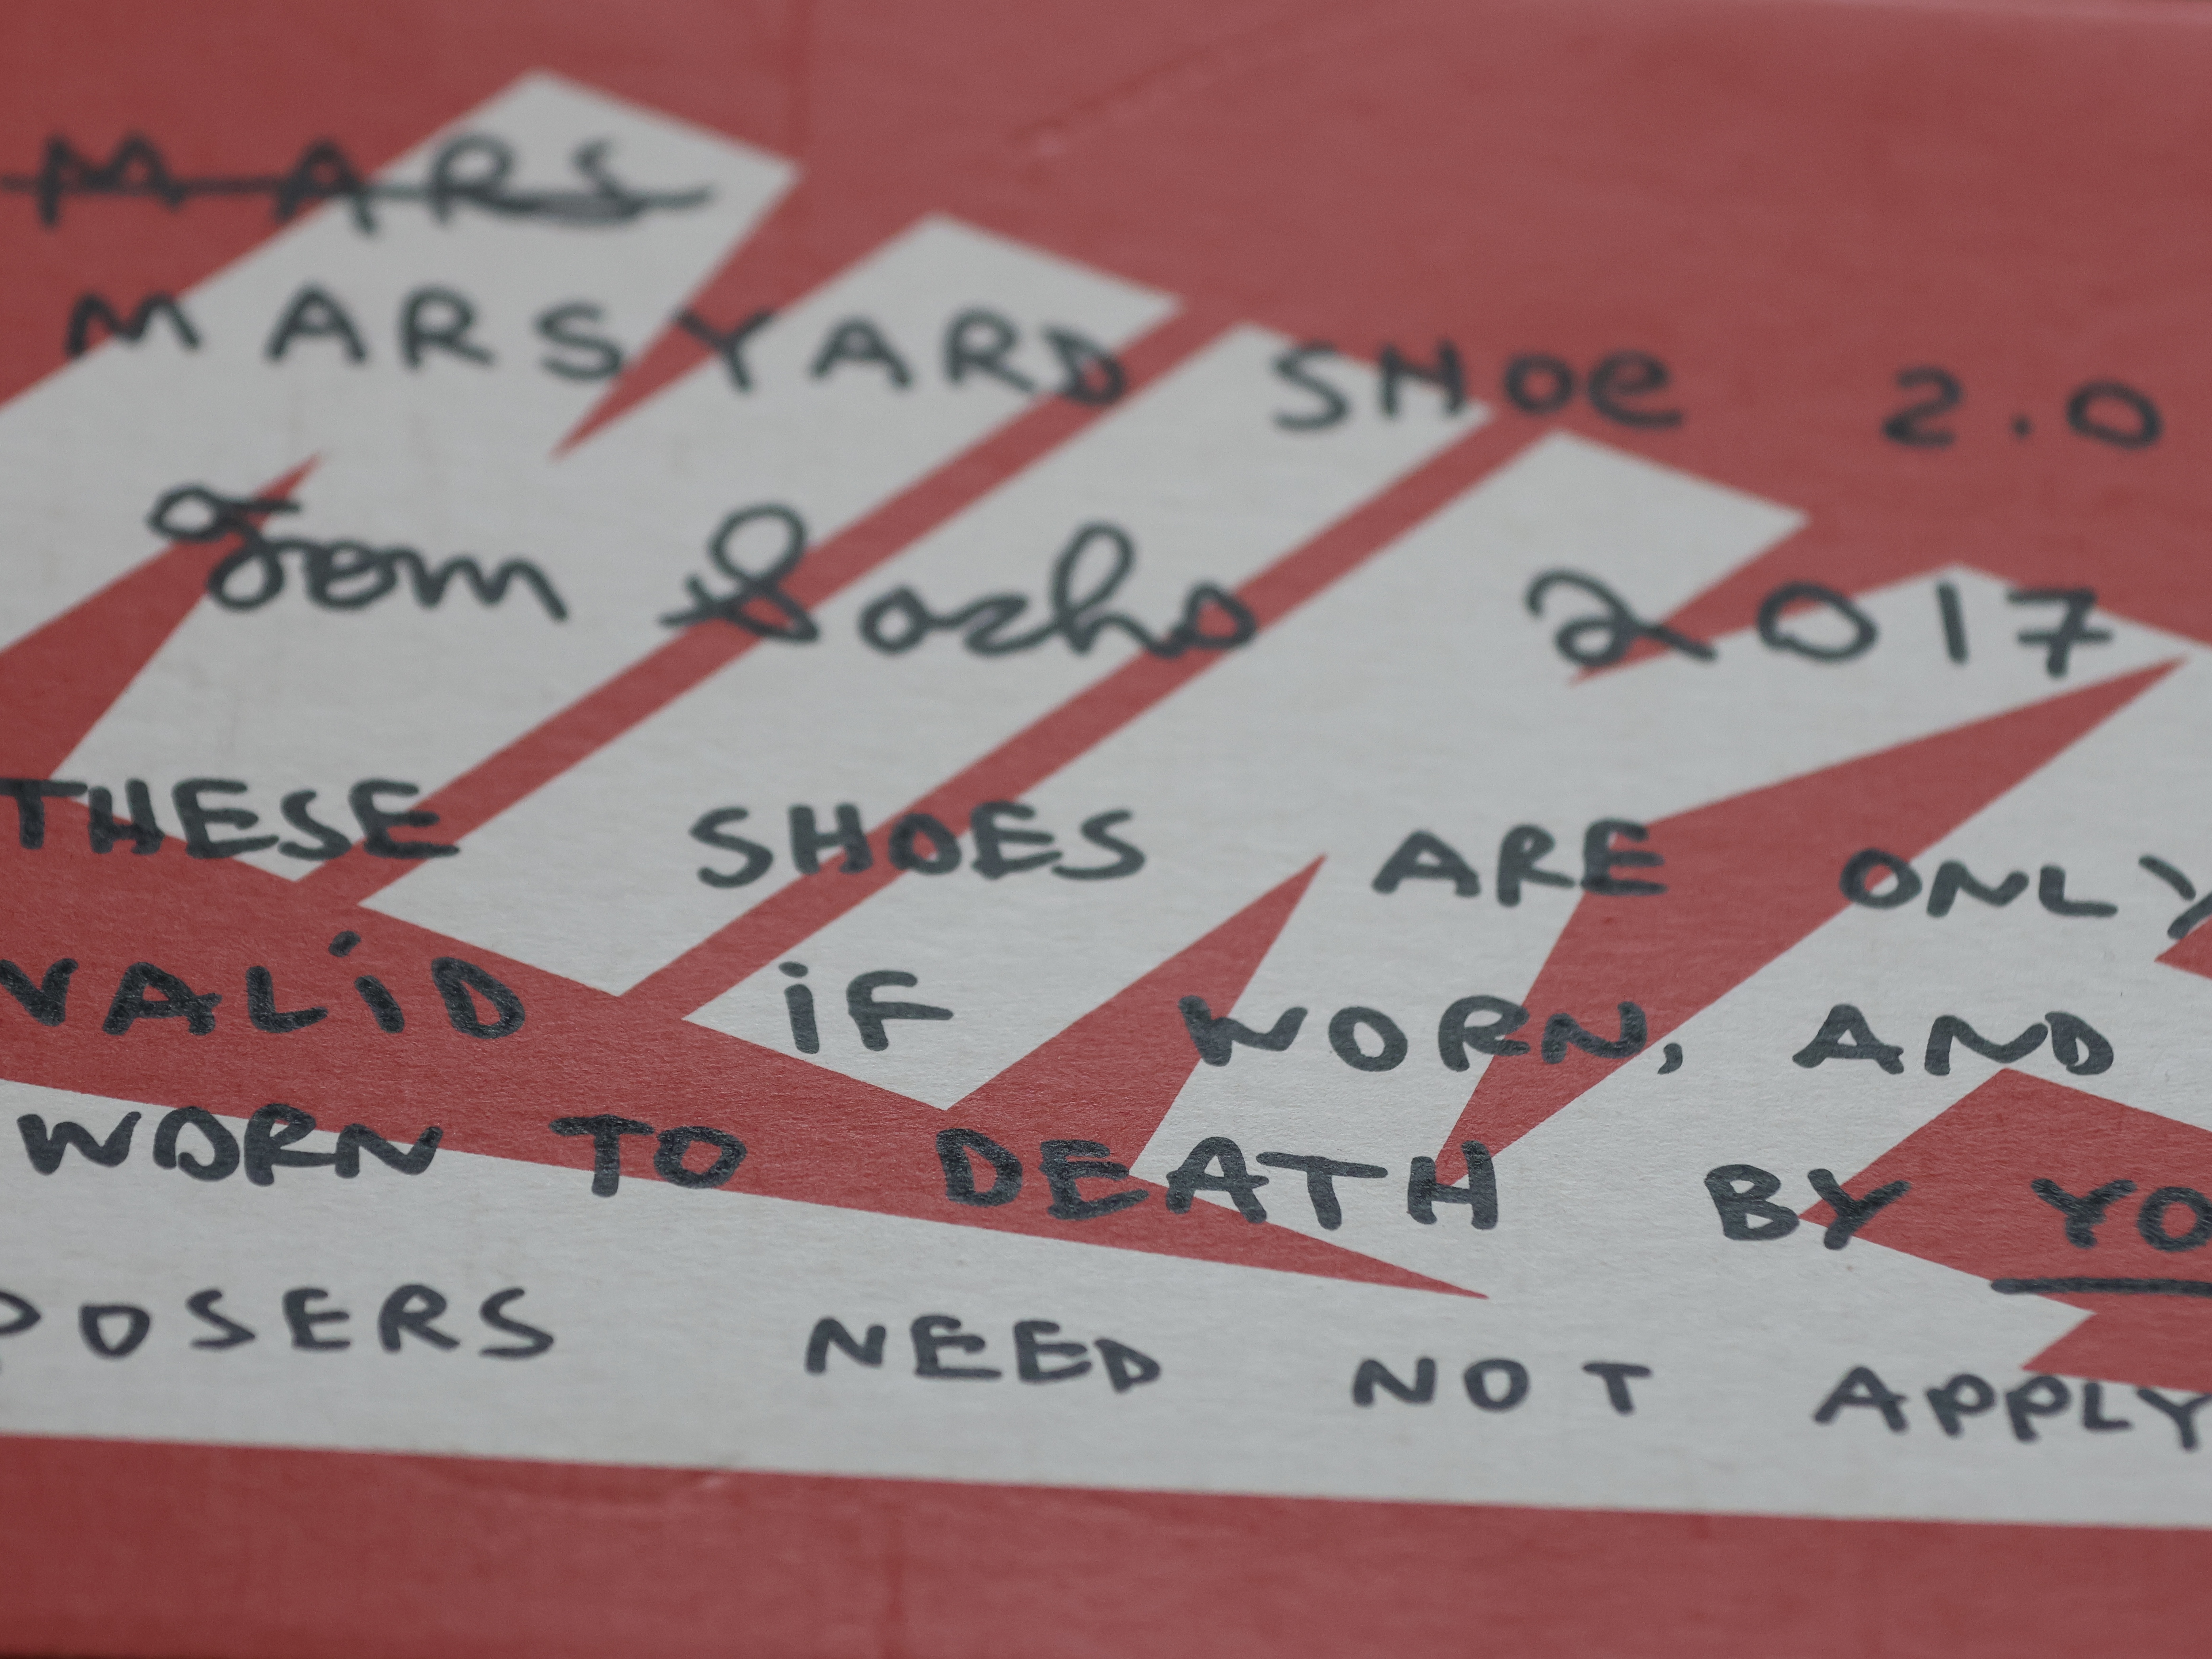 MARS
MARSYARD SHOE 2.0
Tom Sachs 2017
THESE SHOES ARE ONLY
VALID IF WORN, AND
WORN TO DEATH BY YO
POSERS NEED NOT APPLY